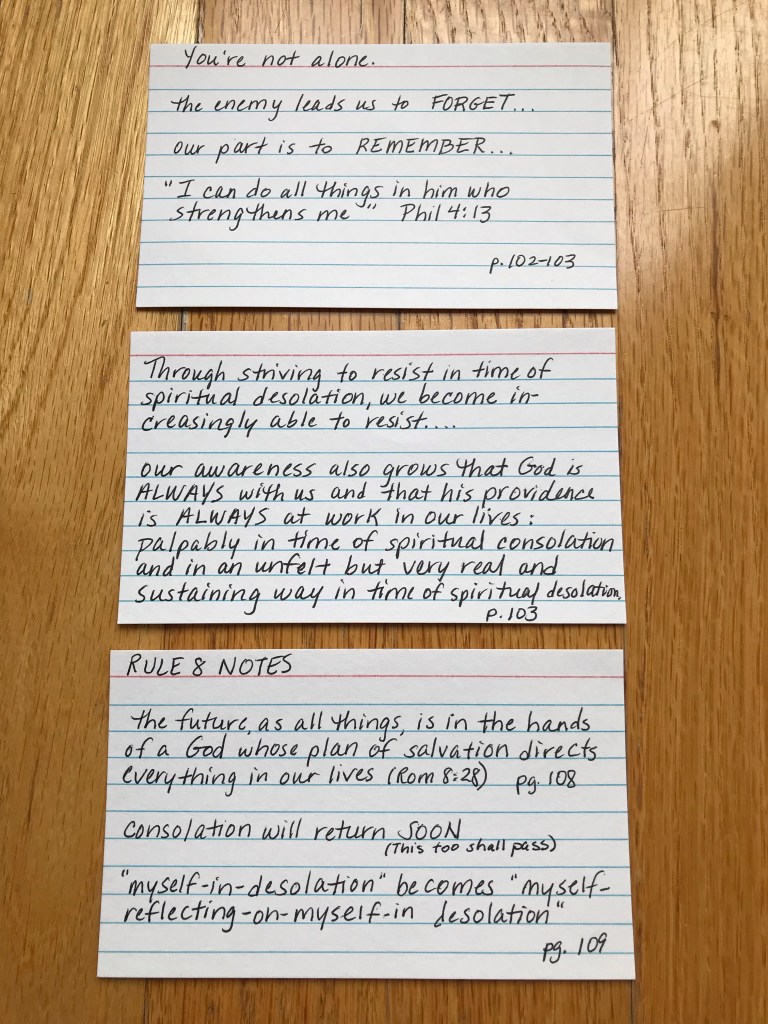 You're not alone.
the enemy leads us to FORGET...
our part is to REMEMBER...
"I can do all things in him who
strengthens me" Phil 4:13
p. 102-103
Through striving to resist in time of
spiritual desolation, we become in-
creasingly able to resist....
our awareness also grows that God is
ALWAYS with us and that his providence
is ALWAYS at work in our lives:
palpably in time of spiritual consolation
and in an unfelt but very real and
sustaining way in time of spiritual desolation.
p. 103
RULE 8 NOTES
the future, as all things, is in the hands
of a God whose plan of salvation directs
everything in our lives (Rom 8:28) pg. 108
consolation will return SOON
(This too shall pass)
"myself-in-desolation" becomes "myself-
reflecting-on-myself-in desolation"
pg. 109